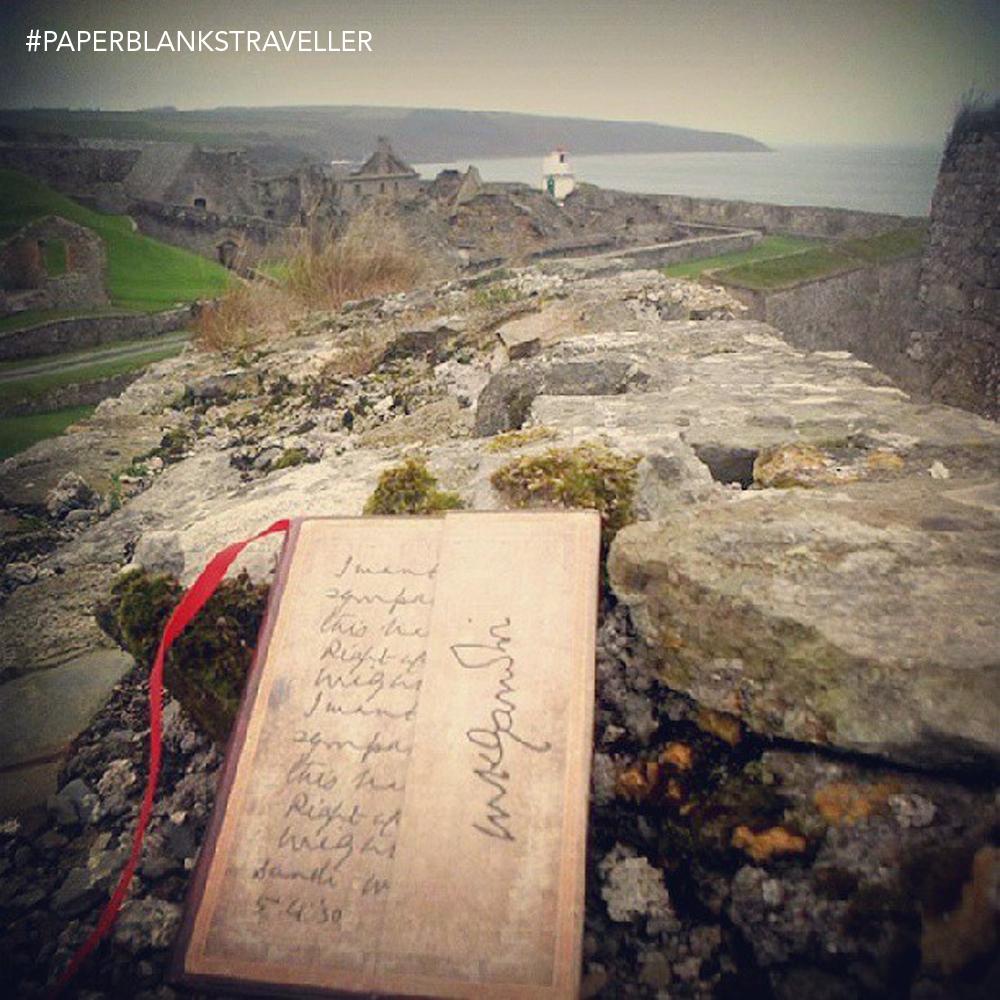 #PAPERBLANKSTRAVELLER
I want
sympa
this ba
Right ag
Might
I want
sympa
this ba
Right of
Might
Dandi
5.4.'30
MKGandhi